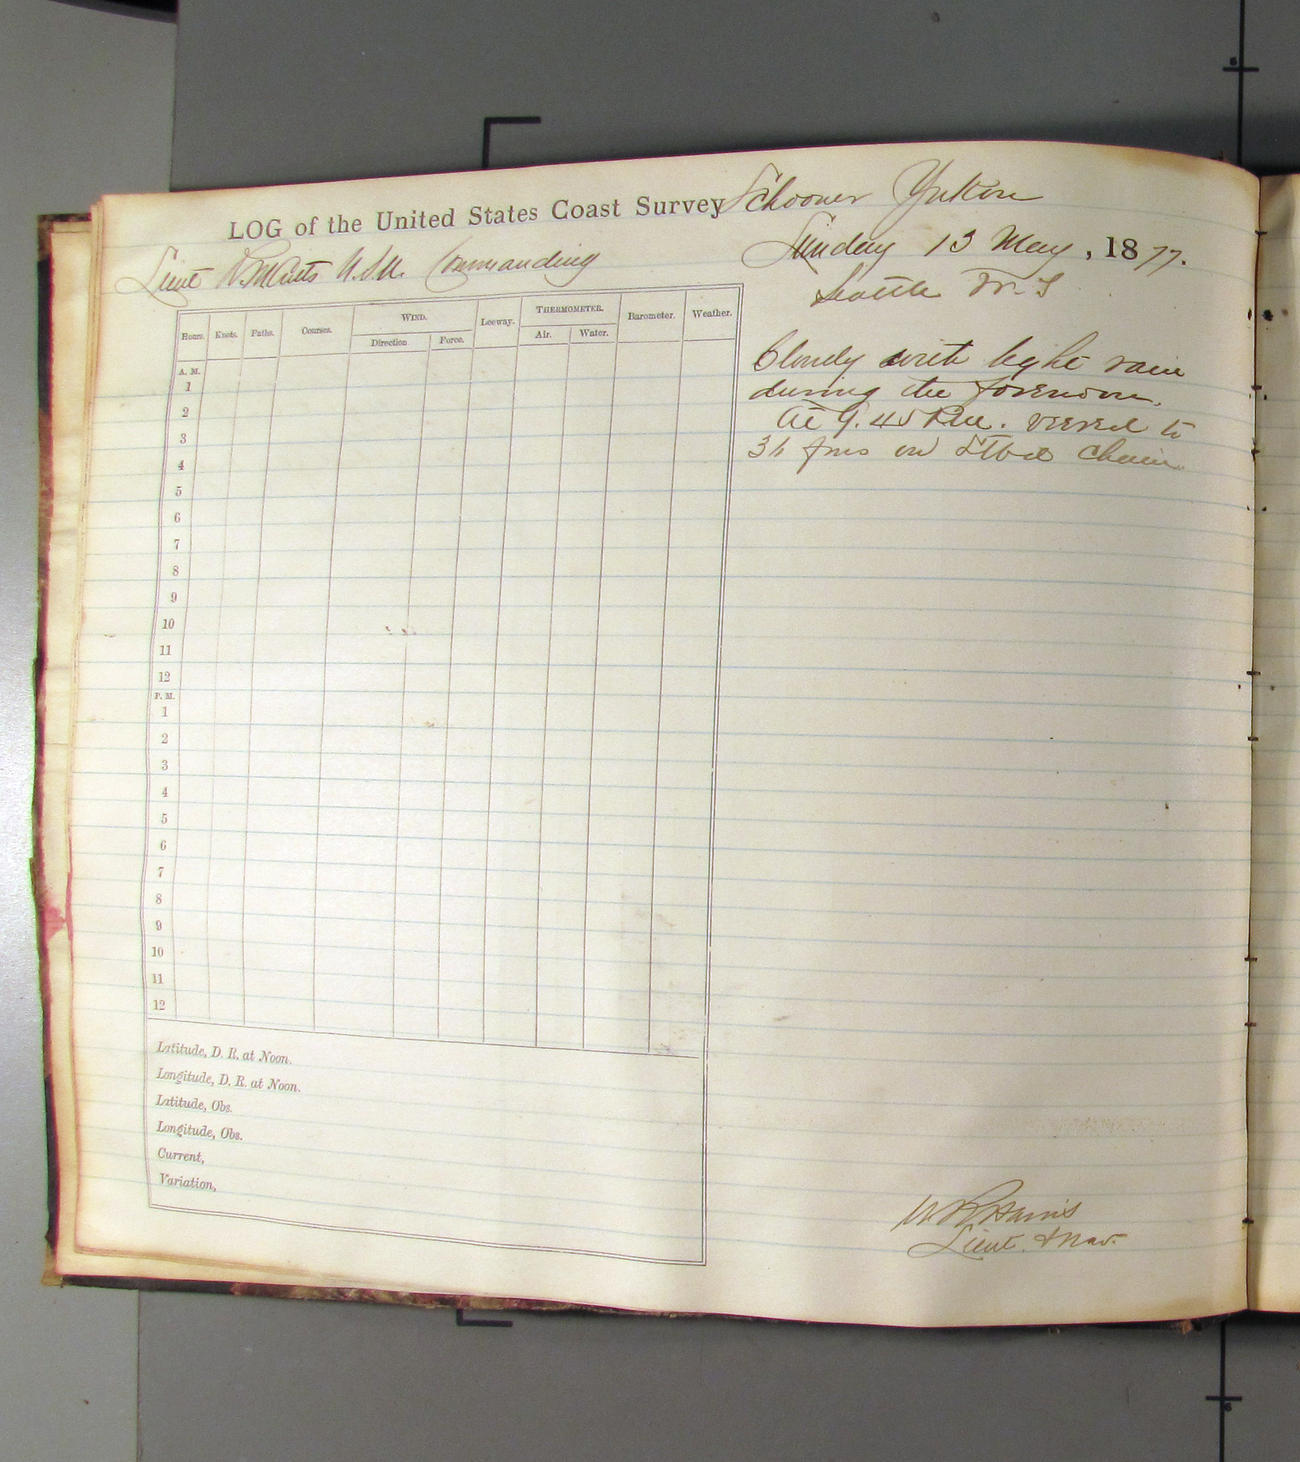 LOG of the United States Coast Survey Schooner Yukon
Lieut Commanding
Sunday 13 May, 1877.
Seattle W. T
Hours. Knots. Faths. Courses. WIND. Leeway. THERMOMETER. Barometer. Weather.
Direction Force. Air. Water.
A. M.
1
2
3
4
5
6
7
8
9
10
11
12
P. M.
1
2
3
4
5
6
7
8
9
10
11
12
Latitude, D. R. at Noon.
Longitude, D. R. at Noon.
Latitude, Obs.
Longitude, Obs.
Current,
Variation,
Cloudy with light rain
during the forenoon.
At 9.45 P.M. veered to
fms on Stbd Chain
Lieut. & Nav.